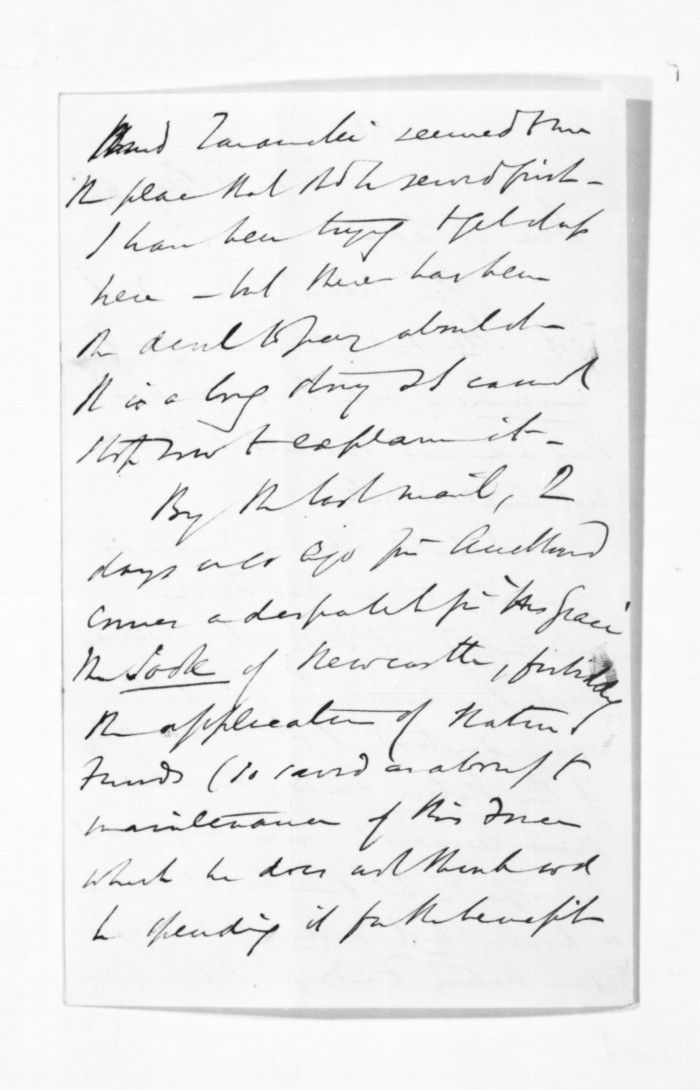 and Taranaki seemed to me
the place that shd be served first –
I have been trying to get
here – but there has been
the devil to pay about it –
It is a long story & I cannot
stop now to explain it –
By the last mail, 2
days ago fm Auckland
comes a despatch fm "His Grace
the Dook of Newcastle, forbidding
the application of Native
Funds (so saved as above) to
maintenance of this Force
which he does not think wd
be spending it for the benefit